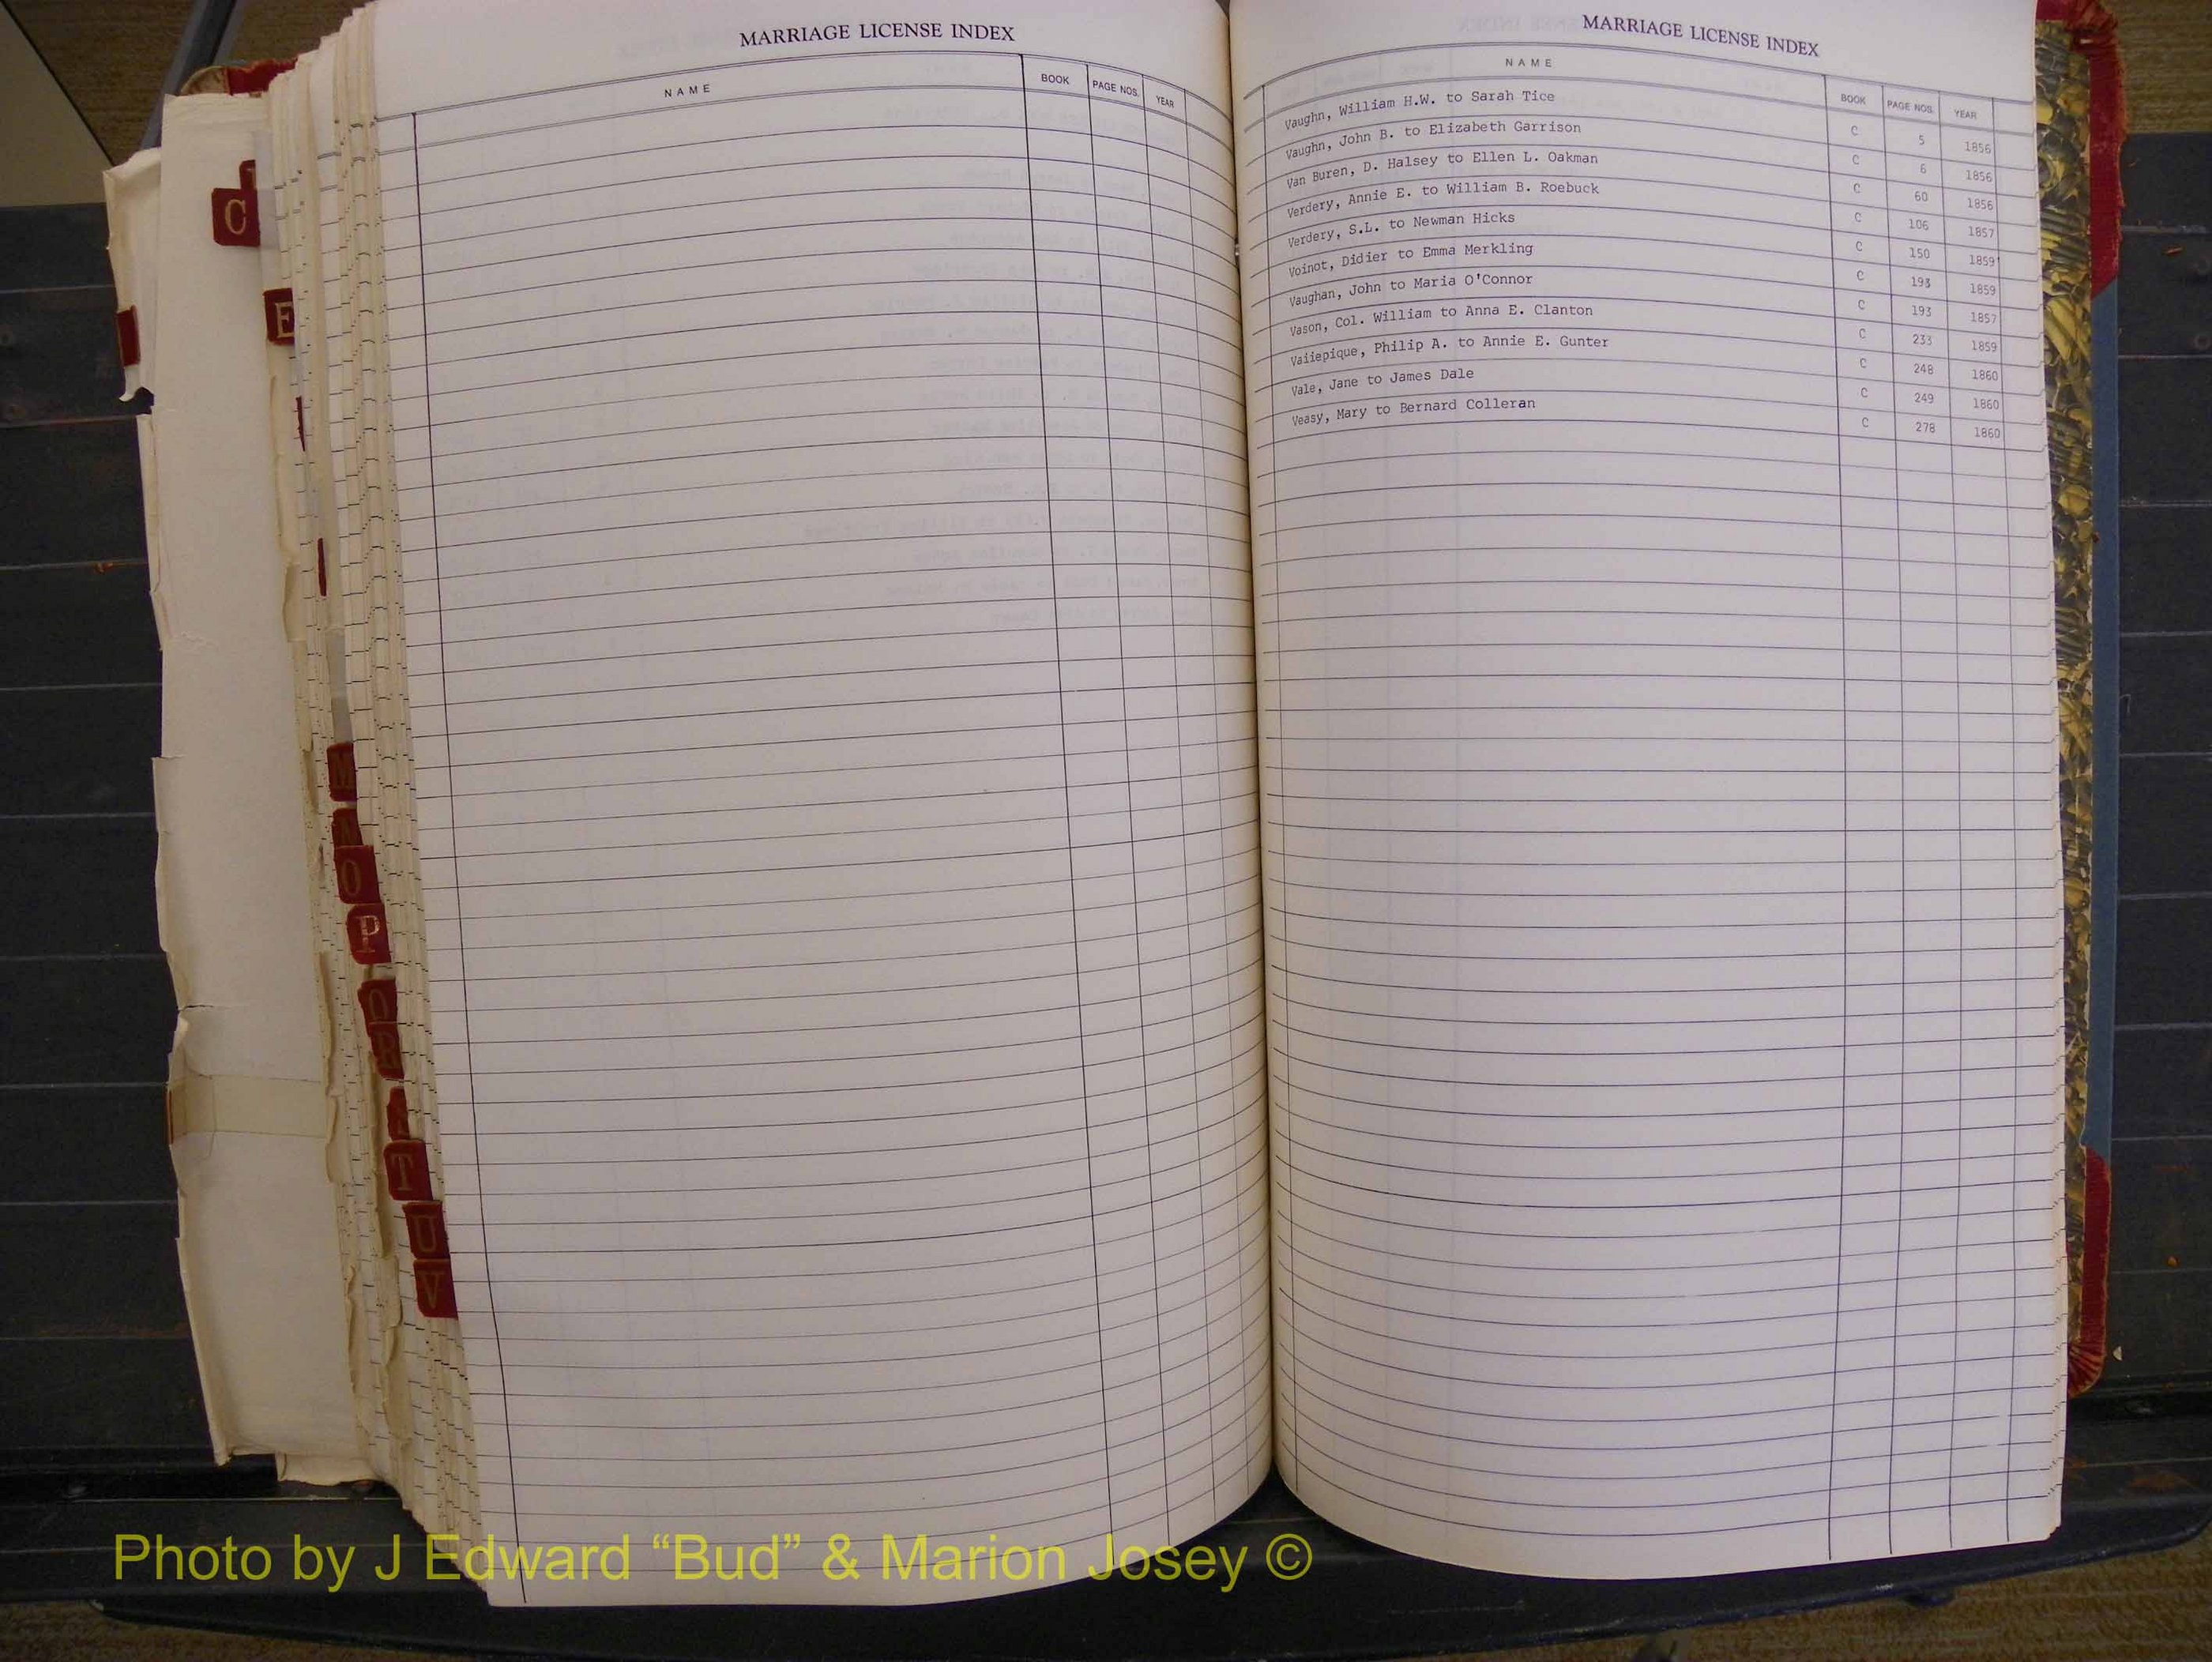 MARRIAGE LICENSE INDEX
NAME BOOK PAGE NOS. YEAR
MARRIAGE LICENSE INDEX
NAME BOOK PAGE NOS. YEAR
Vaughn, William H.W. to Sarah Tice C 5 1856
Vaughn, John B. to Elizabeth Garrison C 6 1856
Van Buren, D. Halsey to Ellen L. Oakman C 60 1856
Verdery, Annie E. to William B. Roebuck C 106 1857
Verdery, S.L. to Newman Hicks C 150 1859
Voinot, Didier to Emma Merkling C 193 1859
Vaughan, John to Maria O'Connor C 193 1857
Vason, Col. William to Anna E. Clanton C 233 1859
Vaiiepique, Philip A. to Annie E. Gunter C 248 1860
Vale, Jane to James Dale C 249 1860
Veasy, Mary to Bernard Colleran C 278 1860
C
E
M
N
O
P
Q
R
T
U
V
Photo by J Edward “Bud” & Marion Josey ©